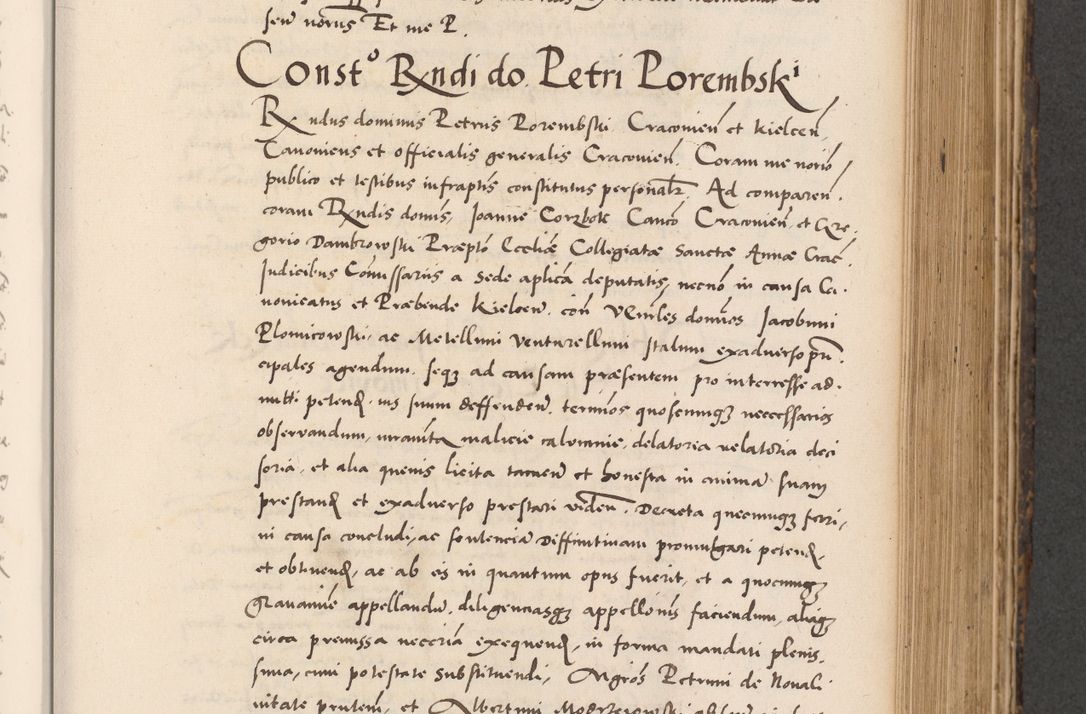 seu norius Et me P.
Const⁰ Rndi do. Petri Porembskⁱ
Rndus dominus Petrus Porembski Cracovien et Kielcen,
Canonicus et officialis generalis Cracovien. Coram me norio
publico et testibus infraptis constitutus personalr. Ad comparen.
coram Rndis domis, Joanne Corzbok Canco Cracovien, et Gre.
gorio Dambrowski Præpto Eccliæ Collegiatæ Sanctæ Annæ Crac.
Judicibus Comissariis a Sede aplica deputatis, necno in causa Ca.
nonicatus et Præbende Kielcen. con Venles domes Jacobum
Plomicowski, ac Metellum Venturellum Italum exadverso prin.
cipales agendum. seqz ad causam præsentem pro interresse ad.
mitti petend. ius suum deffenden. termos quoscumqz neccessarios
observandum, iuramta malicie calumnie, delatoria relatoria deci
soria, et alia quevis licita tamen et honesta in animam suam
prestand et exadverso prestari viden. Decreta quecumqz ferri,
in causa concludi, ac sententia Deffinitivam promulgari petend,
et obtinend, ac ab eis in quantum opus fuerit, et a quocumqz
Gravamine appellandu, diligenciasqz appellonis faciendum, aliaqz
circa premissa necceria exequend, in forma mandati plenis,
sima, cum potestate Substituendi, Mgros Petrum de Nouali
uitate prntem, et Albertum Modrzejowski